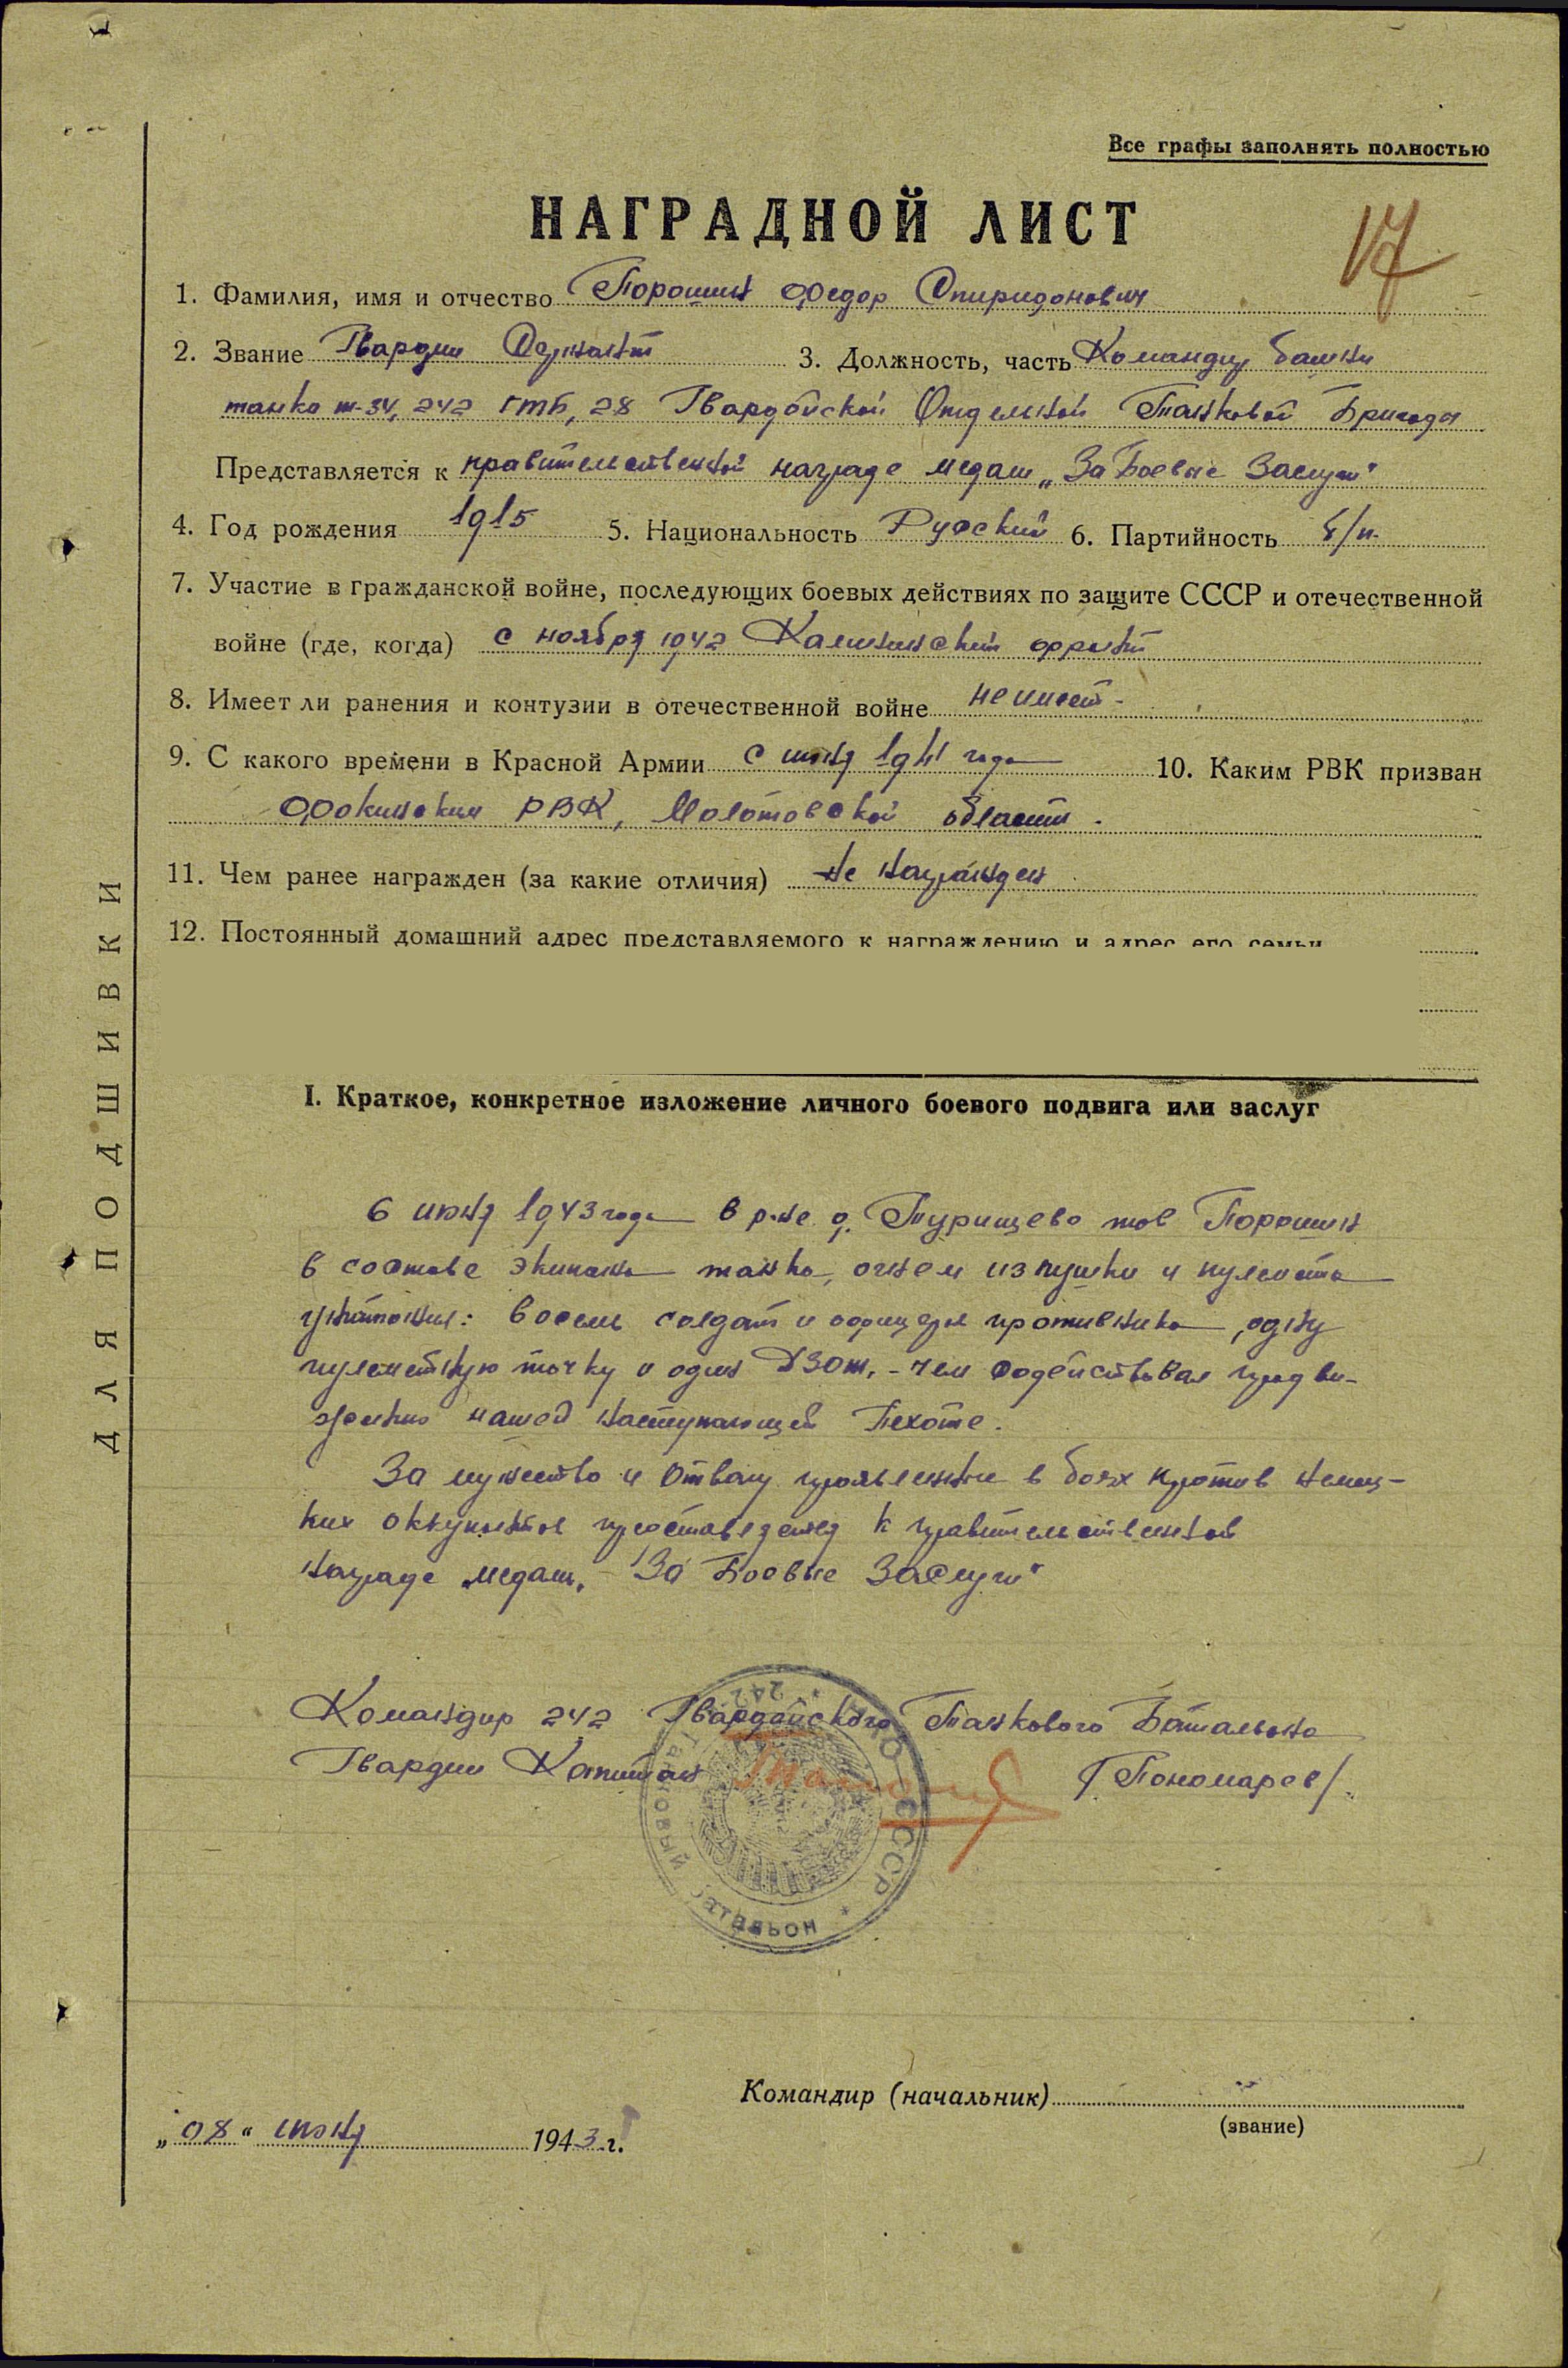 Все графы заполнять полностью
НАГРАДНОЙ ЛИСТ
17
1. Фамилия, имя и отчество Порошин Федор Спиридонович
2. Звание Гвардии Сержант 3. Должность, часть Командир башни
танка т-34, 242 ГТБ, 28 Гвардейской Отдельной Танковой Бригады
Представляется к правительственной награде медаль „За Боевые Заслуги"
4. Год рождения 1915 5. Национальность Русский 6. Партийность б/п.
7. Участие в гражданской войне, последующих боевых действиях по защите СССР и отечественной
войне (где, когда) с ноября 1942 Калининский фронт
8. Имеет ли ранения и контузии в отечественной войне не имеет -
9. С какого времени в Красной Армии с 1941 года 10. Каким РВК призван
Фокинским РВК, Молотовской области.
11. Чем ранее награжден (за какие отличия) Не награжден
12. Постоянный домашний адрес представляемого к награждению и адрес его семьи
I. Краткое, конкретное изложение личного боевого подвига или заслуг
6 июня 1943 года в р-не д. Турищево тов Порошин
в составе экипажа танка, огнем из пушки и пулемета
уничтожил: восемь солдат и офицера противника, одну
пулеметную точку и один ДЗОТ, - чем содействовал продви-
жению нашей наступающей Пехоте.
За мужество и Отвагу проявленные в боях против немец-
ких оккупантов к правительственной
награде медаль „За Боевые Заслуги"
Командир 242 Гвардейского Танкового Батальона
Гвардии Капитан /Пономарев/.
НКО СССР * 242 * Танковый батальон
Командир (начальник)
(звание)
„08" июня 1943 г.
ДЛЯ ПОДШИВКИ